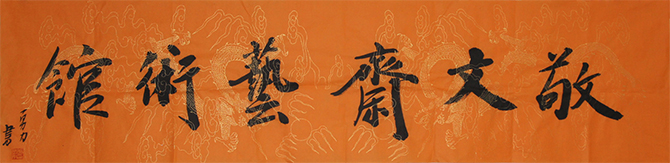 敬文齋藝術館